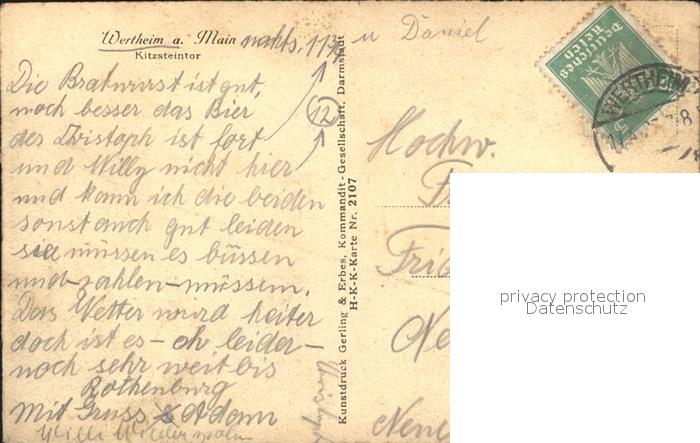 Wertheim a. Main nachts, 11¾ u Daniel
Kitzsteintor
Die Bratwurst ist gut,
noch besser das Bier
12
des Christoph ist fort
und Willy nicht hier
und kann ich die beiden
sonst auch gut leiden
sie müssen es büssen
und – zahlen – müssem.
Das Wetter wird heiter
doch ist es – oh leider –
noch sehr weit bis
Rothenburg
Mit Gruss Adam
Willi
Kunstdruck Gerling & Erbes, Kommandit-Gesellschaft, Darmstadt
H-K-K-Karte Nr. 2107
Hochw.
Deutsches Reich
5
WERTHEIM
privacy protection
Datenschutz